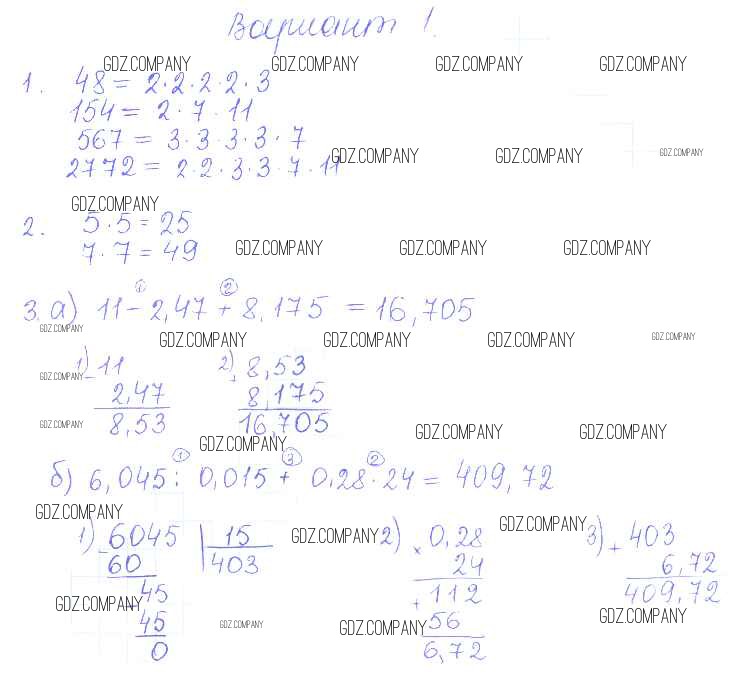 Вариант 1.
GDZ.COMPANY GDZ.COMPANY GDZ.COMPANY GDZ.COMPANY
1. 48 = 2·2·2·2·3
154 = 2·7·11
567 = 3·3·3·3·7
GDZ.COMPANY GDZ.COMPANY GDZ.COMPANY
2772 = 2·2·3·3·7·11
GDZ.COMPANY
2. 5·5 = 25
7·7 = 49
GDZ.COMPANY GDZ.COMPANY GDZ.COMPANY
1 2
3. а) 11 - 2,47 + 8,175 = 16,705
GDZ.COMPANY GDZ.COMPANY GDZ.COMPANY GDZ.COMPANY GDZ.COMPANY
1) 11 2) 8,53
GDZ.COMPANY
- 2,47 + 8,175
8,53 16,705
GDZ.COMPANY GDZ.COMPANY GDZ.COMPANY GDZ.COMPANY
1 3 2
б) 6,045 : 0,015 + 0,28·24 = 409,72
GDZ.COMPANY GDZ.COMPANY GDZ.COMPANY
1) 6045 15 2) × 0,28 3) + 403
- 60 403 24 6,72
45 + 112 409,72
GDZ.COMPANY GDZ.COMPANY GDZ.COMPANY GDZ.COMPANY
- 45 56
0 6,72